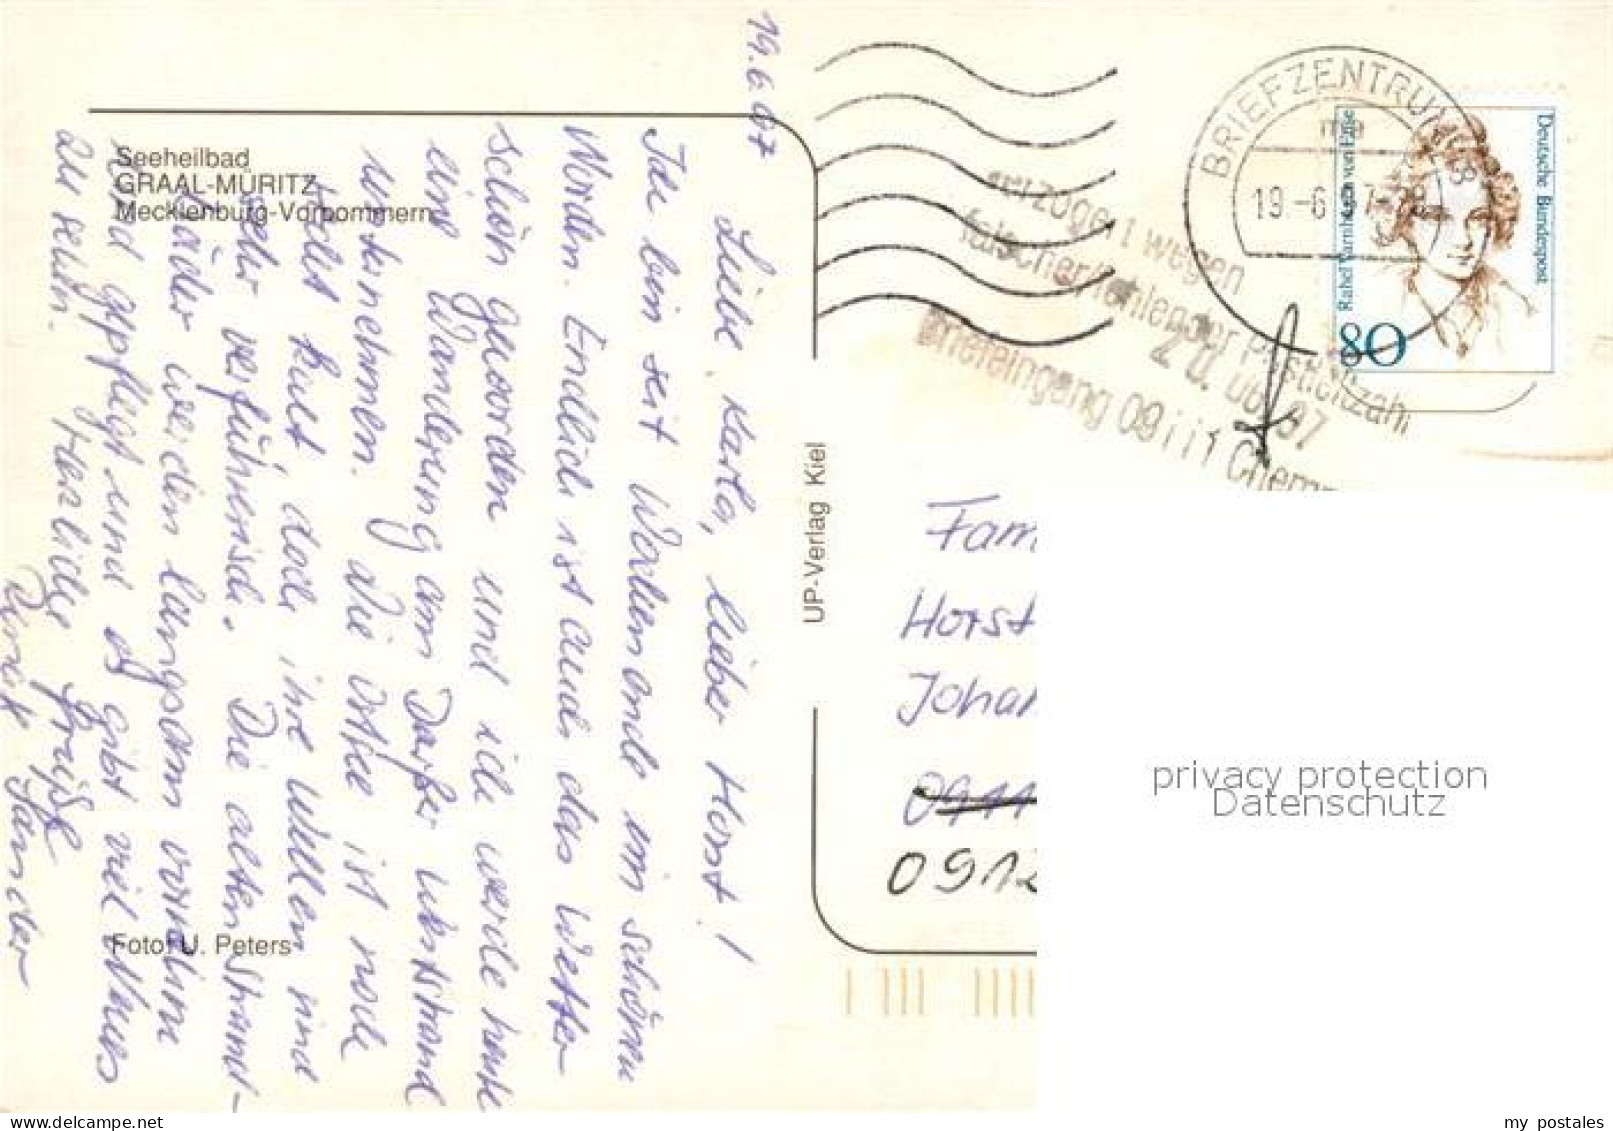 Seeheilbad
GRAAL-MÜRITZ
Mecklenburg-Vorpommern
19.6.97
Liebe Karla, lieber Horst!
Ich bin seit Wochenende im schönen
Norden. Endlich ist auch das Wetter
schön geworden und ich werde heute
eine Wanderung am Darßer Weststrand
unternehmen. Die Ostsee ist noch
kalt, doch ihre Wellen sind
verführerisch. Die alten Strand-
bäder werden langsam vornehm
und gepflegt und es gibt viel Neues
zu sehn. Herzliche Grüße
Sander
Foto: U. Peters
UP-Verlag Kiel
BRIEFZENTRUM
19.-6.
verzögert wegen
falscher/fehlender Postleitzahl
20. 06. 97
Briefeingang 09111 Chem
Deutsche Bundespost
Rahel Varnhagen von Ense
80
Fam
Horst
Johan
09111
0912
privacy protection
Datenschutz
www.delcampe.net
my postales